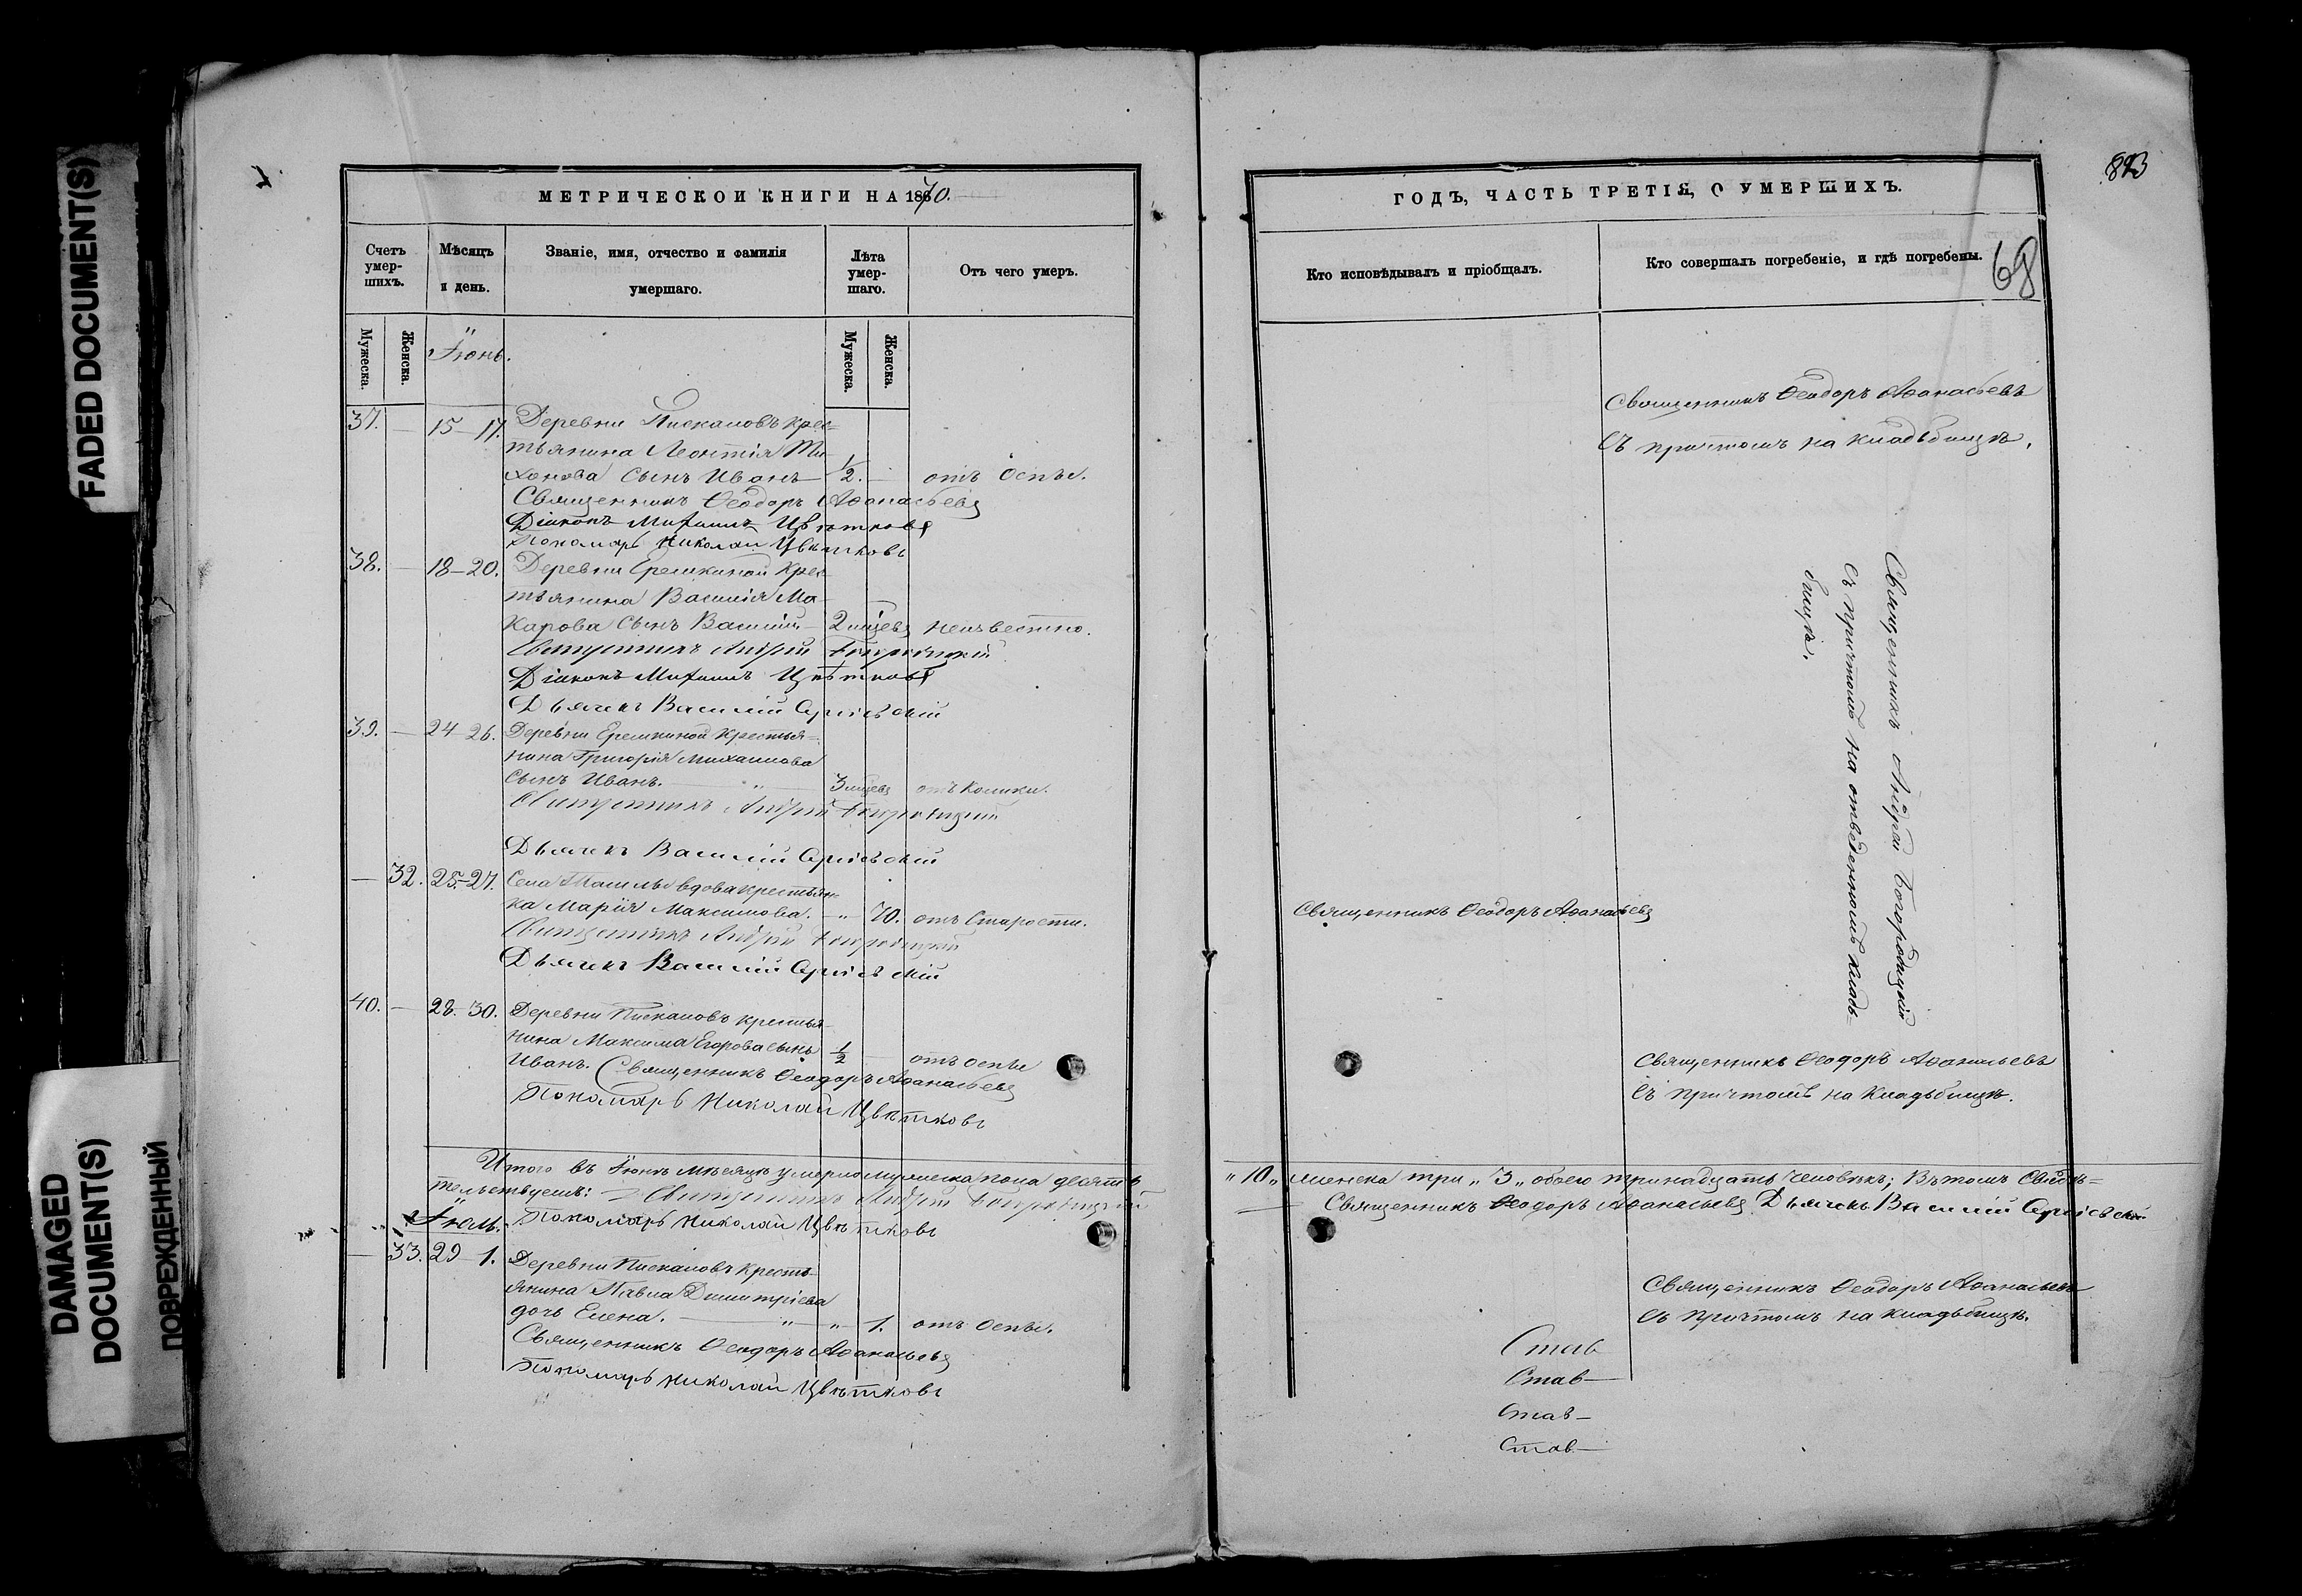 FADED DOCUMENT(S)
DAMAGED
DOCUMENT(S)
ПОВРЕЖДЕННЫЙ
МЕТРИЧЕСКОЙ КНИГИ НА 1870.
Счетъ умер-шихъ.
Мѣсяцъ и день.
Званіе, имя, отчество и фамилія умершаго.
Лѣта умер-шаго.
Отъ чего умеръ.
Мужеска.
Женска.
Мужеска.
Женска.
Іюнь.
37. — 15–17. Деревни Пискаловъ крес=
тьянина Леонтія Ти-
хонова сынъ Иванъ — 1/2. — отъ оспы.
Священникъ Ѳеодоръ Аѳанасьевъ
Діаконъ Михаилъ Цвѣтковъ
Пономарь Николай Цвѣтковъ
38. — 18–20. Деревни Еремкиной крес-
тьянина Василія Ма-
карова сынъ Василій — 2 мцевъ неизвестно.
Священникъ Андрей Богородицкій
Діаконъ Михаилъ Цвѣтковъ
Дьячекъ Василій Сергіевскій
39. — 24–26. Деревни Еремкиной крестья=
нина Григорія Михаилова
сынъ Иванъ. — „ — 3 мцевъ отъ колики.
Священникъ Андрей Богородицкій
Дьячекъ Василій Сергіевскій
— 32. 25–27. Села вдова крестьян-
ка Марія Максимова. — „ — 70. отъ старости.
Священникъ Андрей Богородицкій
Дьячекъ Василій Сергіевскій
40. — 28–30. Деревни Пискаловъ крестья-
нина Максима Егорова сынъ 1/2 — отъ оспы
Иванъ. Священникъ Ѳеодоръ Аѳанасьевъ
Пономарь Николай Цвѣтковъ
Итого въ Іюнѣ мѣсяцѣ умерло мужеска пола десять
тельствуемъ: Священникъ Андрей Богородицкій
Іюль. Пономарь Николай Цвѣтковъ
— 33. 29–1. Деревни Пискаловъ кресть-
янина Павла Димитріева
дочь Елена. — „ — „ — 1. отъ оспы.
Священникъ Ѳеодоръ Аѳанасьевъ
Пономарь Николай Цвѣтковъ
ГОДЪ, ЧАСТЬ ТРЕТІЯ, О УМЕРШИХЪ.
Кто исповѣдывалъ и пріобщалъ.
Кто совершалъ погребеніе, и гдѣ погребены.
68
Священникъ Ѳеодоръ Аѳанасьевъ
съ причтомъ на кладьбищѣ.
Священникъ Андрей Богородицкій
съ причтомъ на отведенномъ кладь=
бищѣ.
Священникъ Ѳеодоръ Аѳанасьевъ
Священникъ Ѳеодоръ Аѳанасьевъ
съ причтомъ на кладьбищѣ.
„10„ женска три „3„ обоего тринадцать человѣкъ; въ томъ свидѣ=
Священникъ Ѳеодоръ Аѳанасьевъ Дьячекъ Василій Сергіевскій
Священникъ Ѳеодоръ Аѳанасьевъ
съ причтомъ на кладьбищѣ.
Став
Став—
Став—
Став—